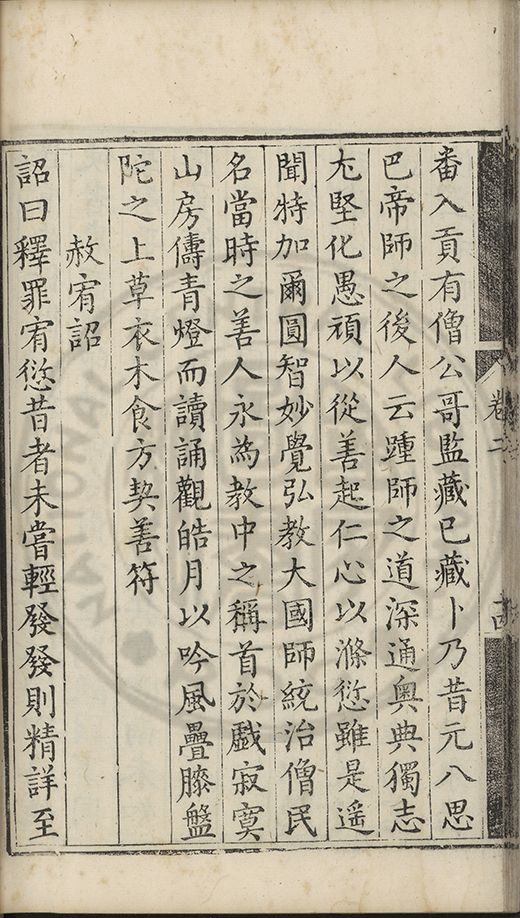 番入貢有僧公哥監藏巴藏卜乃昔元八思
巴帝師之後人云踵師之道深通奧典獨志
尢堅化愚頑以從善起仁心以滌愆雖是遥
聞特加爾圓智妙覺弘教大國師統治僧民
名當時之善人永為教中之稱首於戲寂寞
山房儔青燈而讀誦觀皓月以吟風疊膝盤
陀之上草衣木食方契善符
赦宥詔
詔曰釋罪宥愆昔者未嘗輕發發則精詳至
卷二